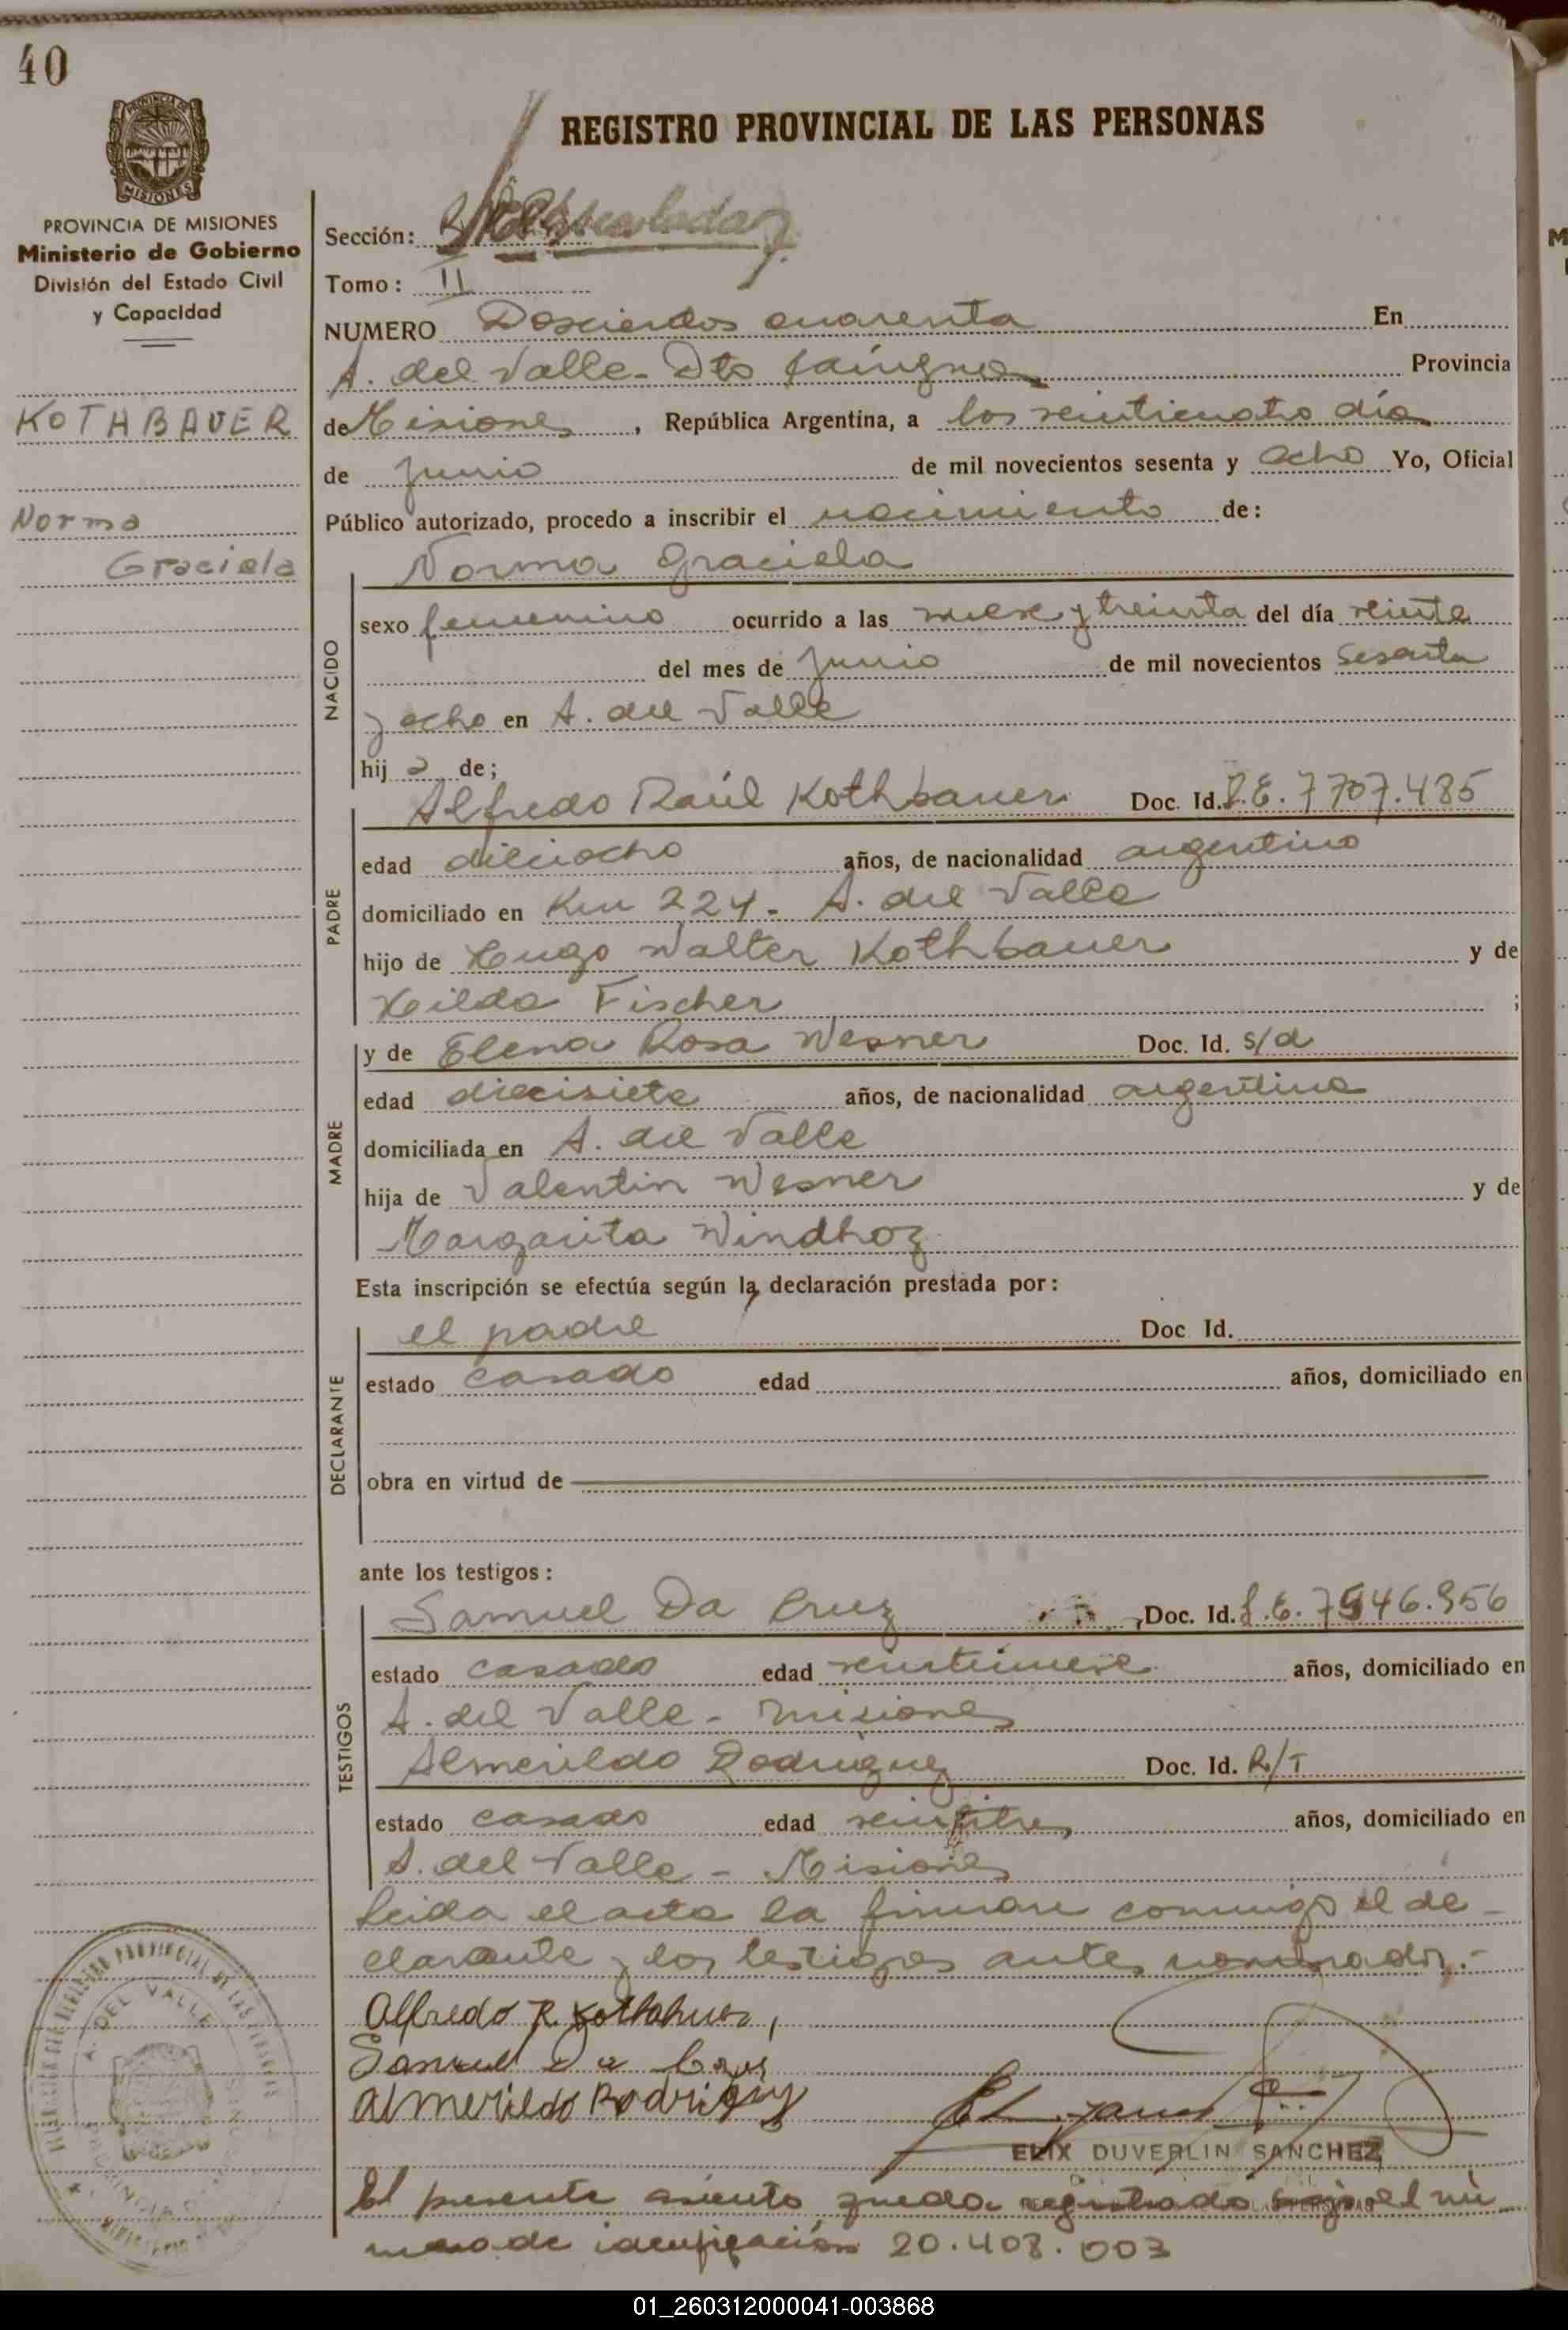 40
REGISTRO PROVINCIAL DE LAS PERSONAS
PROVINCIA DE
MISIONES
PROVINCIA DE MISIONES
Ministerio de Gobierno
División del Estado Civil
y Capacidad
KOTHBAUER
Norma
Graciela
Sección:
Tomo: II
NUMERO Doscientos cuarenta En
A. del Valle - Dto Cainguas Provincia
de Misiones, República Argentina, a los veinticuatro día
de Junio de mil novecientos sesenta y ocho Yo, Oficial
Público autorizado, procedo a inscribir el nacimiento de:
NACIDO
Norma Graciela
sexo femenino ocurrido a las nueve y treinta del día veinte
del mes de Junio de mil novecientos sesenta
y ocho en A. del Valle
hija de;
PADRE
Alfredo Raúl Kothbauer Doc. Id. L.E. 7707.485
edad dieciocho años, de nacionalidad argentino
domiciliado en Km 224 - A. del Valle
hijo de Hugo Walter Kothbauer y de
Hilda Fischer ;
MADRE
y de Elena Rosa Wesner Doc. Id. s/d
edad diecisiete años, de nacionalidad argentina
domiciliada en A. del Valle
hija de Valentin Wesner y de
Margarita Windhoz
Esta inscripción se efectúa según la declaración prestada por:
DECLARANTE
el padre Doc Id.
estado casado edad años, domiciliado en
obra en virtud de
ante los testigos:
TESTIGOS
Samuel Da Cruz Doc. Id. L.E. 7546.956
estado casado edad veintinueve años, domiciliado en
A. del Valle - Misiones
Almerildo Rodriguez Doc. Id. R/T
estado casado edad veintitres años, domiciliado en
A. del Valle - Misiones
Leida el acta la firman conmigo el de-
clarante y los testigos antes nombrados.-
Alfredo R. Kothbauer
Samuel Da Cruz
Almerildo Rodriguez
ELIX DUVERLIN SANCHEZ
A. DEL VALLE
El presente asiento queda registrado bajo el nú
mero de identificación 20.408.003
01_260312000041-003868